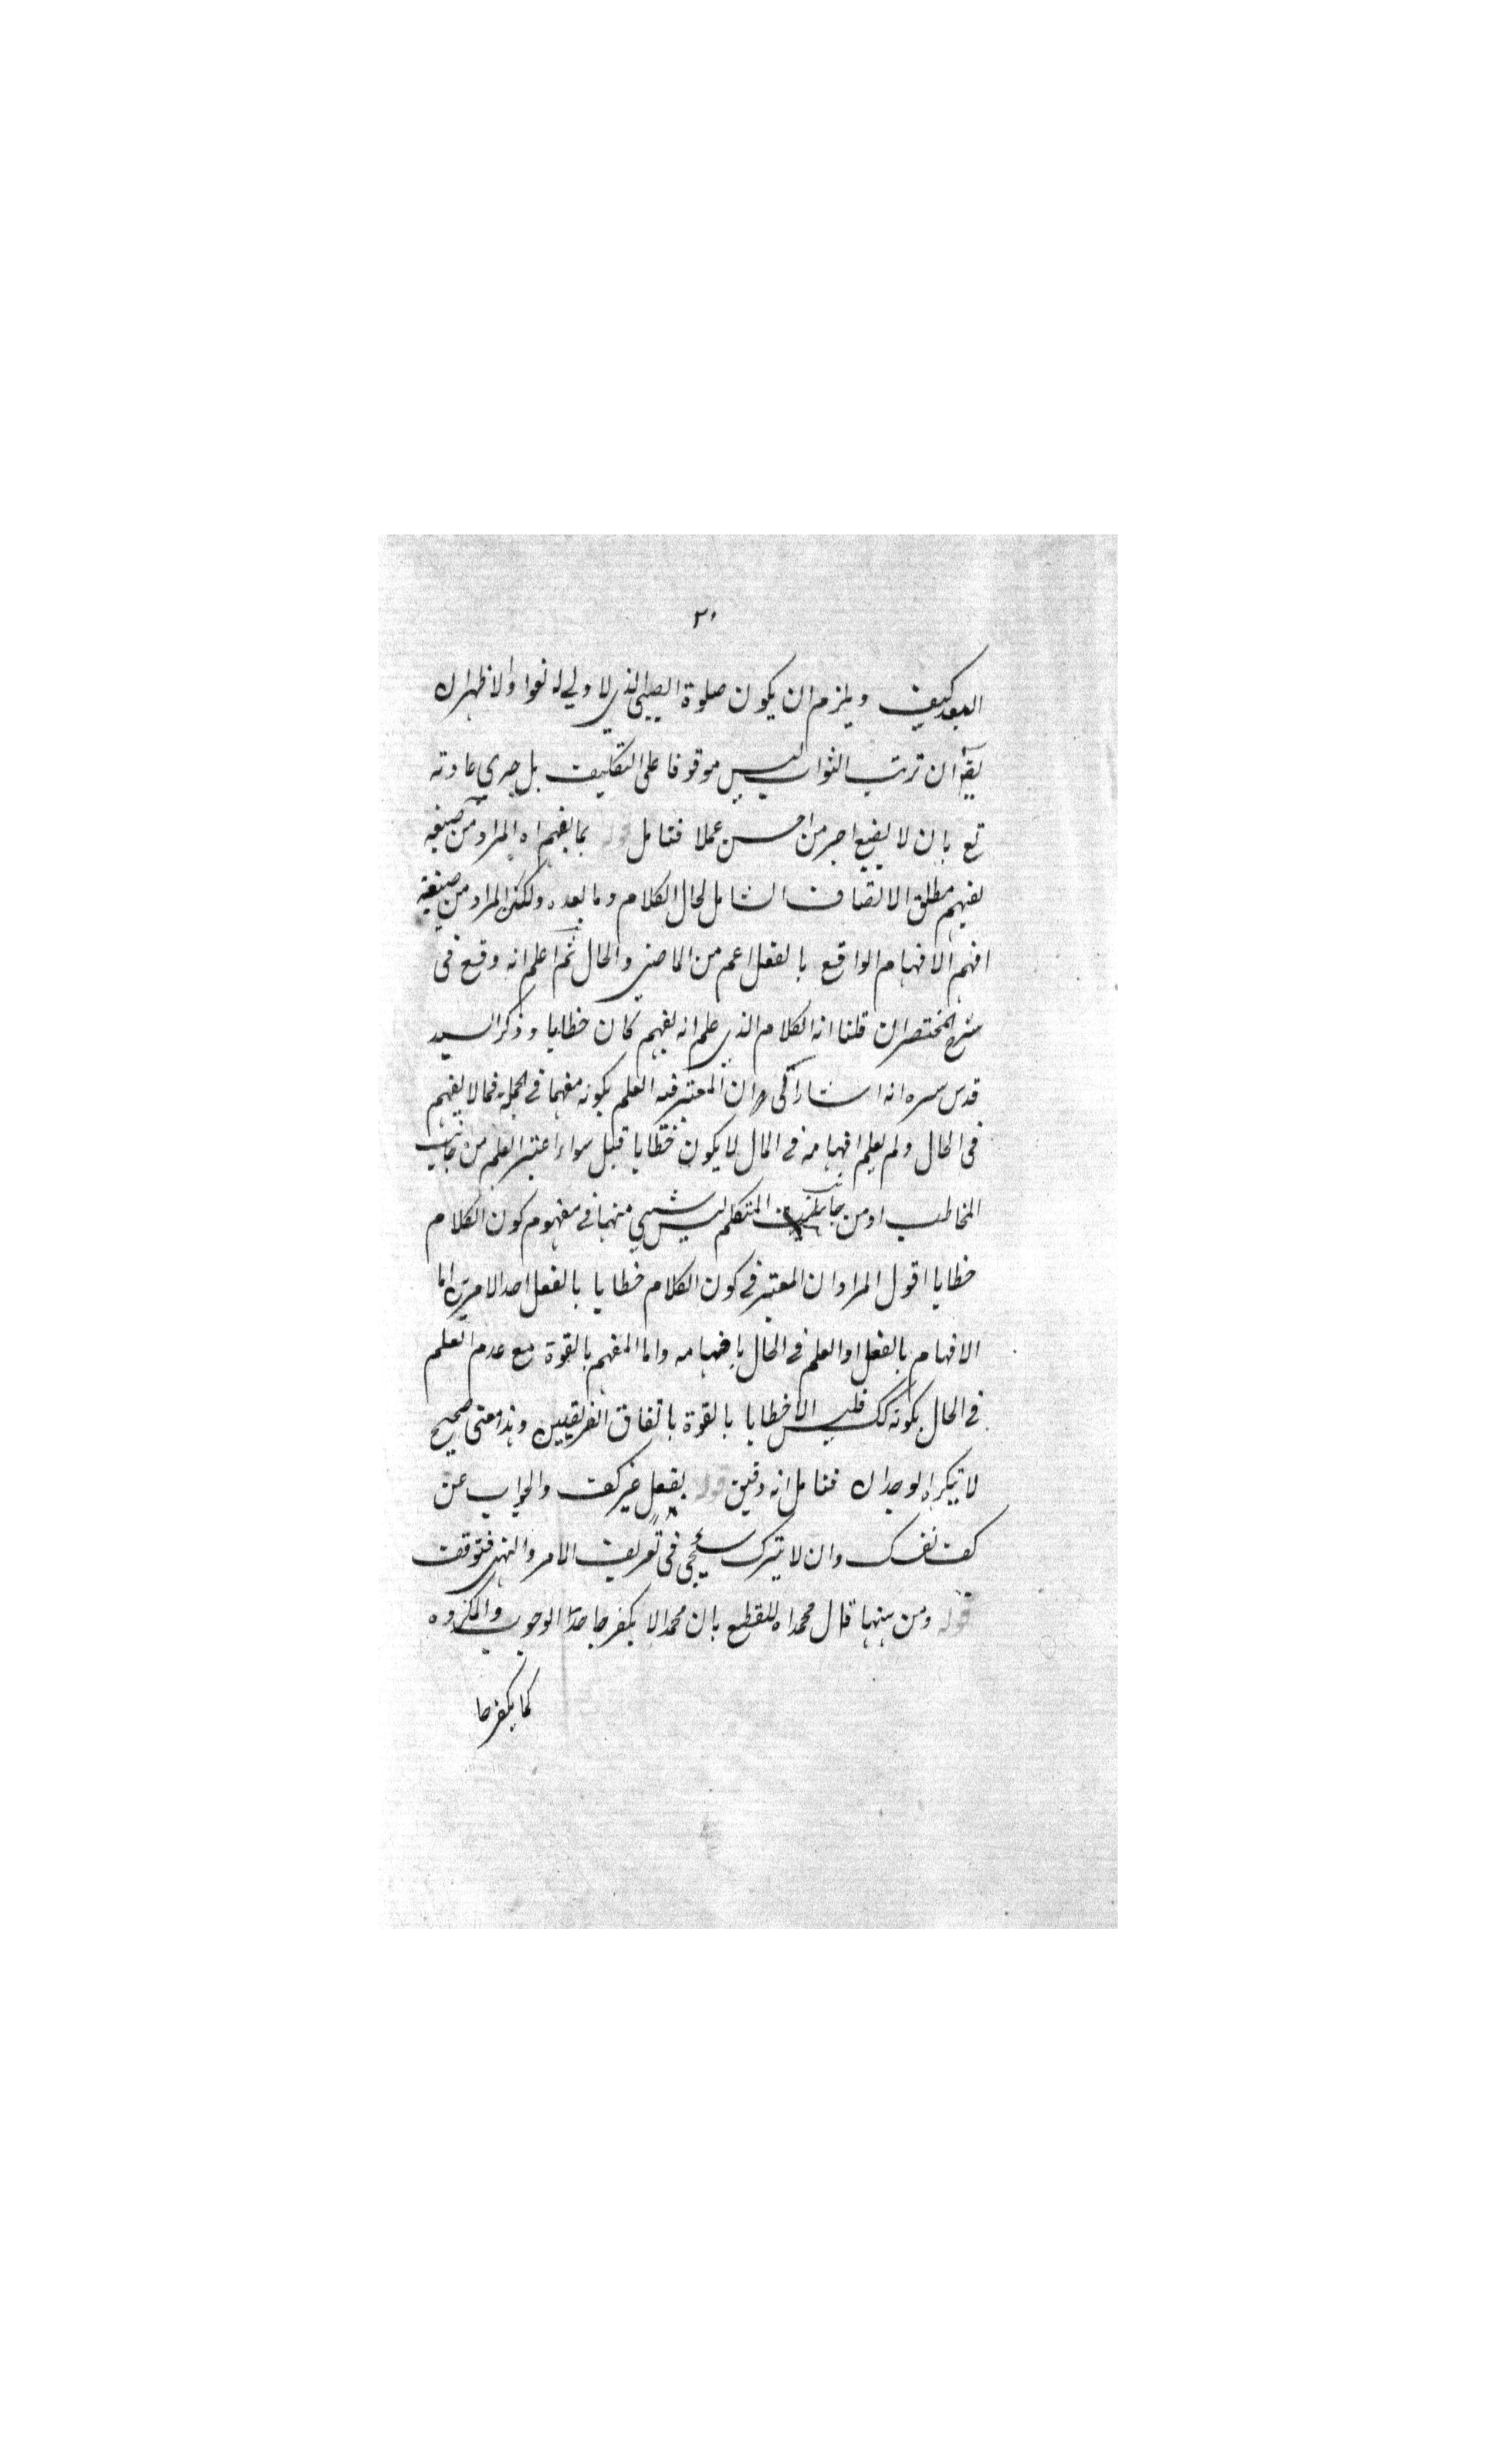 ٣٠
البعد كيف ويلزم ان يكون صلوة الصبى الذي لا ولي له لغوا والاظهر ان
يقا ان ترتب الثواب ليس موقوفا على التكليف بل جري عادته
تع بان لا يضيع اجر من احسن عملا فتامل قوله بما يفهم اه المراد من صيغة
يفهم مطلق الاتصاف الشامل لحال الكلام وما بعده ولكن المراد من صيغة
افهم الافهام الواقع بالفعل اعم من الماضي والحال ثم اعلم انه وقع فى
شرح المختصر ان قلنا انه الكلام الذي علم انه يفهم كان خطابا وذكر السيد
قدس سره انه اشار الى ان المعتبر فيه العلم بكونه مفهما في الجملة فما لا يفهم
فى الحال ولم يعلم افهامه في المال لا يكون خطابا قيل سواء اعتبر العلم من جانب
المخاطب او من جانب المتكلم ليس شيي منهما في مفهوم كون الكلام
خطابا اقول المراد ان المعتبر في كون الكلام خطابا بالفعل احد الامرين اما
الافهام بالفعل او العلم في الحال بافهامه واما المفهم بالقوة مع عدم العلم
في الحال بكونه كك فليس الا خطابا بالقوة باتفاق الفريقين وهذا معنى صحيح
لا ينكره الوجدان فتامل انه دقيق قوله بفعل غير كف والجواب عن
كف نفسك وان لا تترك سيجئ فى تعريف الامر والنهى فتوقف
قوله ومن ههنا قال محمد اه للقطع بان محمدا لا يكفر جاحد الوجوب والمكروه
كما يكفر جا